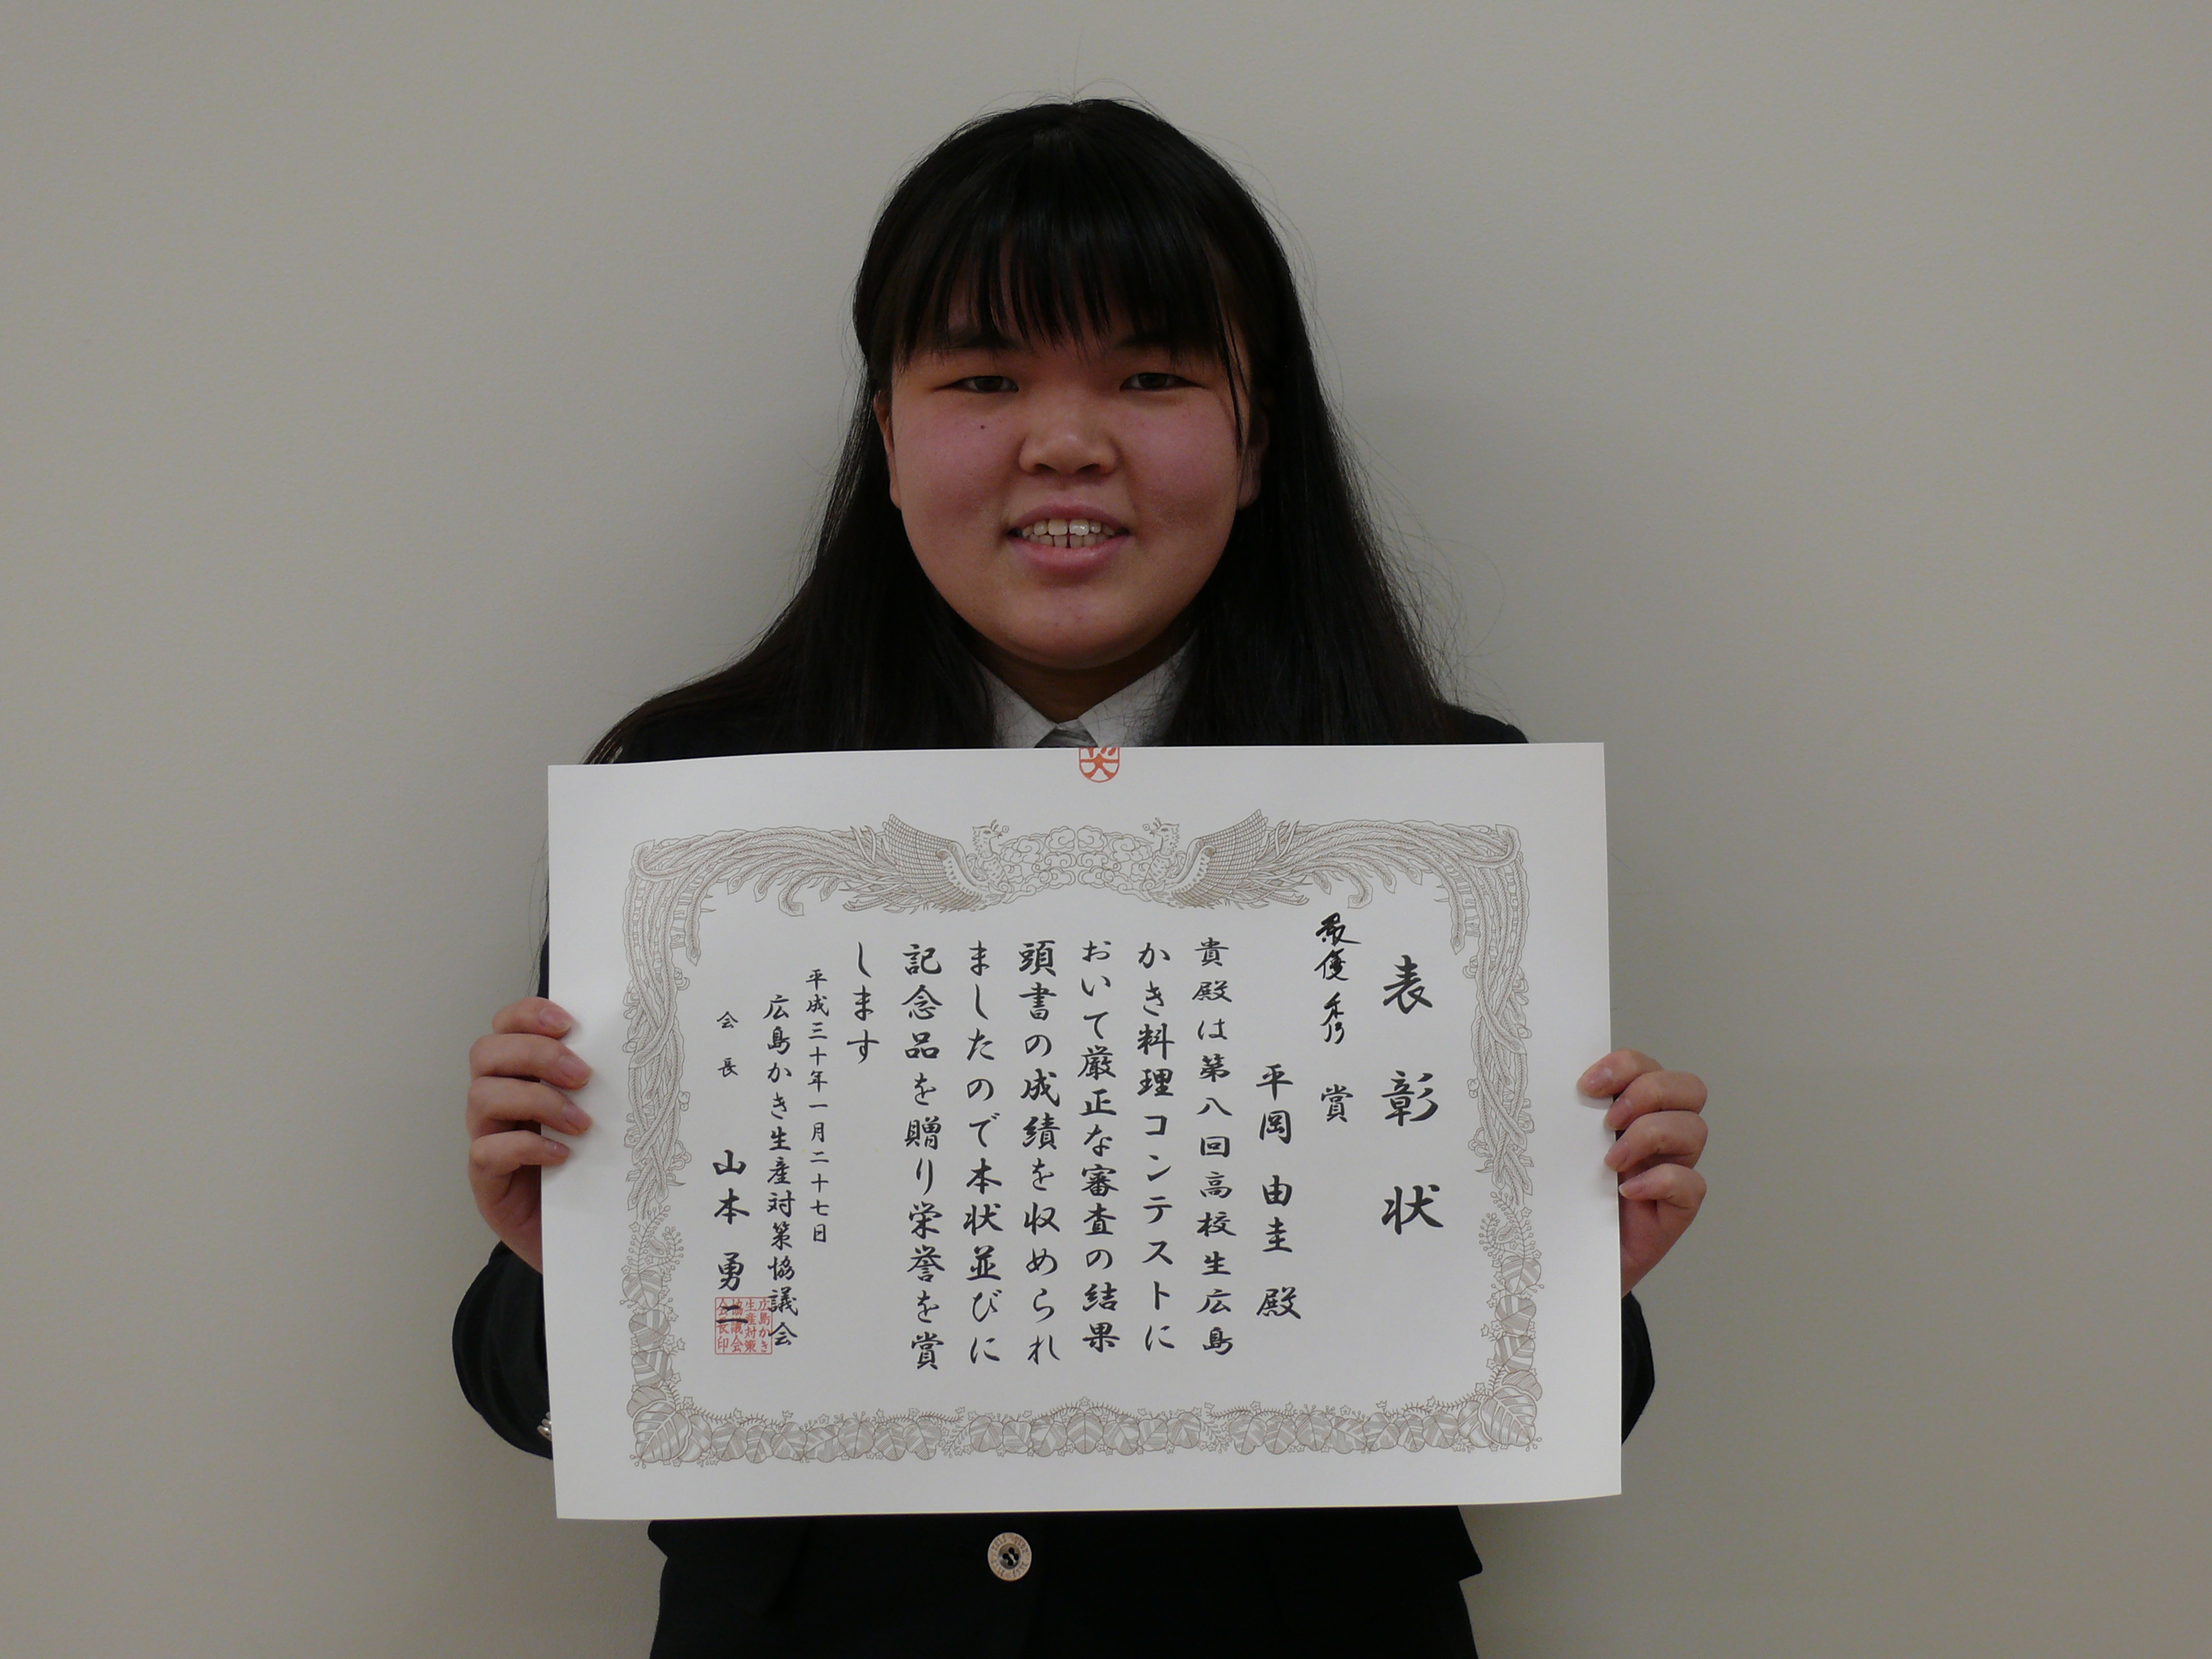 表彰状
最優秀賞
平岡 由圭 殿
貴殿は第八回高校生広島
かき料理コンテストに
おいて厳正な審査の結果
頭書の成績を収められ
ましたので本状並びに
記念品を贈り栄誉を賞
します
平成三十年一月二十七日
広島かき生産対策協議会
会長 山本 勇二
広島かき
生産対策
協議会
会長印